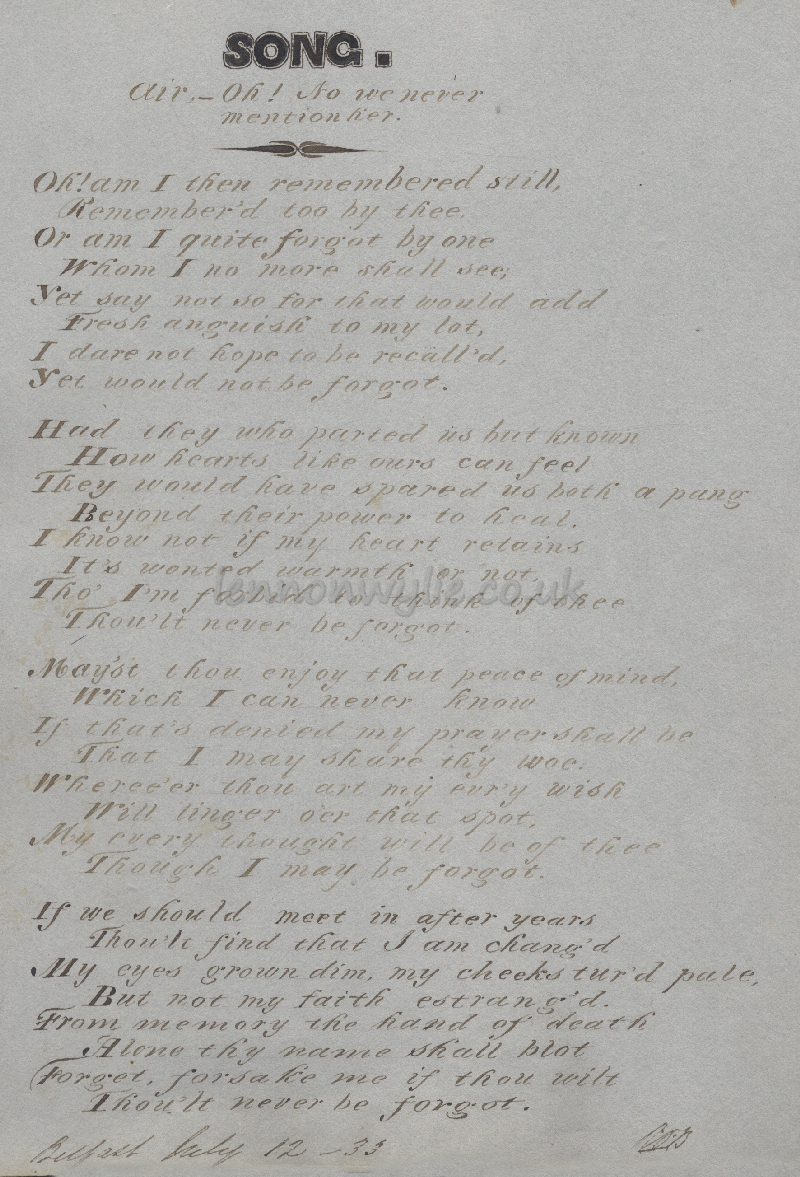 SONG.
Air,– Oh! No we never
mention her.
Oh! am I then remembered still,
Remember'd too by thee.
Or am I quite forgot by one
Whom I no more shall see;
Yet say not so for that would add
Fresh anguish to my lot,
I dare not hope to be recall'd,
Yet would not be forgot.
Had they who parted us but known
How hearts like ours can feel
They would have spared us both a pang
Beyond their power to heal.
I know not if my heart retains
It's wonted warmth or not,
Tho' I'm forbid to think of thee
Thou'lt never be forgot.
May'st thou enjoy that peace of mind,
Which I can never know
If that's denied my prayer shall be
That I may share thy woe.
Where'er thou art my ev'ry wish
Will linger o'er that spot,
My every thought will be of thee
Though I may be forgot.
If we should meet in after years
Thou'lt find that I am chang'd
My eyes grown dim, my cheeks tur'd pale,
But not my faith estrang'd.
From memory the hand of death
Alone thy name shall blot
Forget, forsake me if thou wilt
Thou'lt never be forgot.
Belfast July 12 – 33
lennonwylie.co.uk